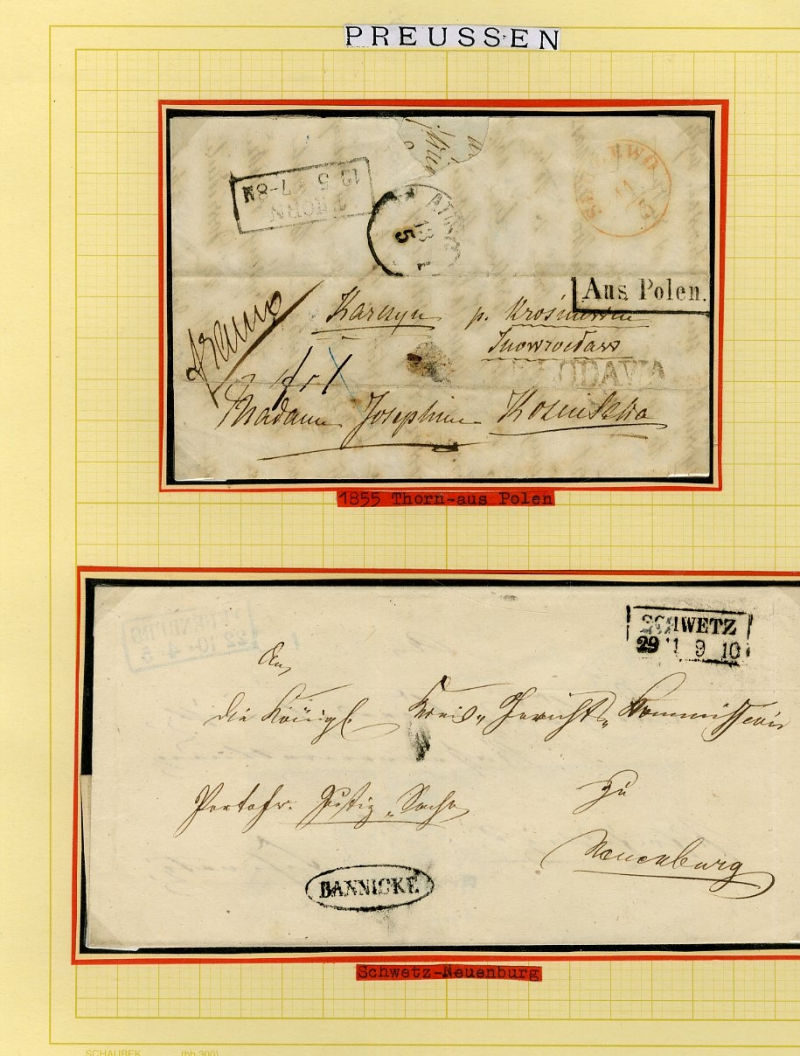 PREUSSEN
THORN
13 5 7-8
13
5
Aus Polen.
franco
Karczyn p. Krośniewice
Inowrocław
WŁODAWA
Madame Josephine
1855 Thorn-aus Polen
SCHWETZ
29 11 9 10
An
die Königl. Kreis-Gerichts-Kommission
Portofr. Justiz-Sache
zu
Neuenburg
BANNICKE
Schwetz-Neuenburg
SCHAUBEK